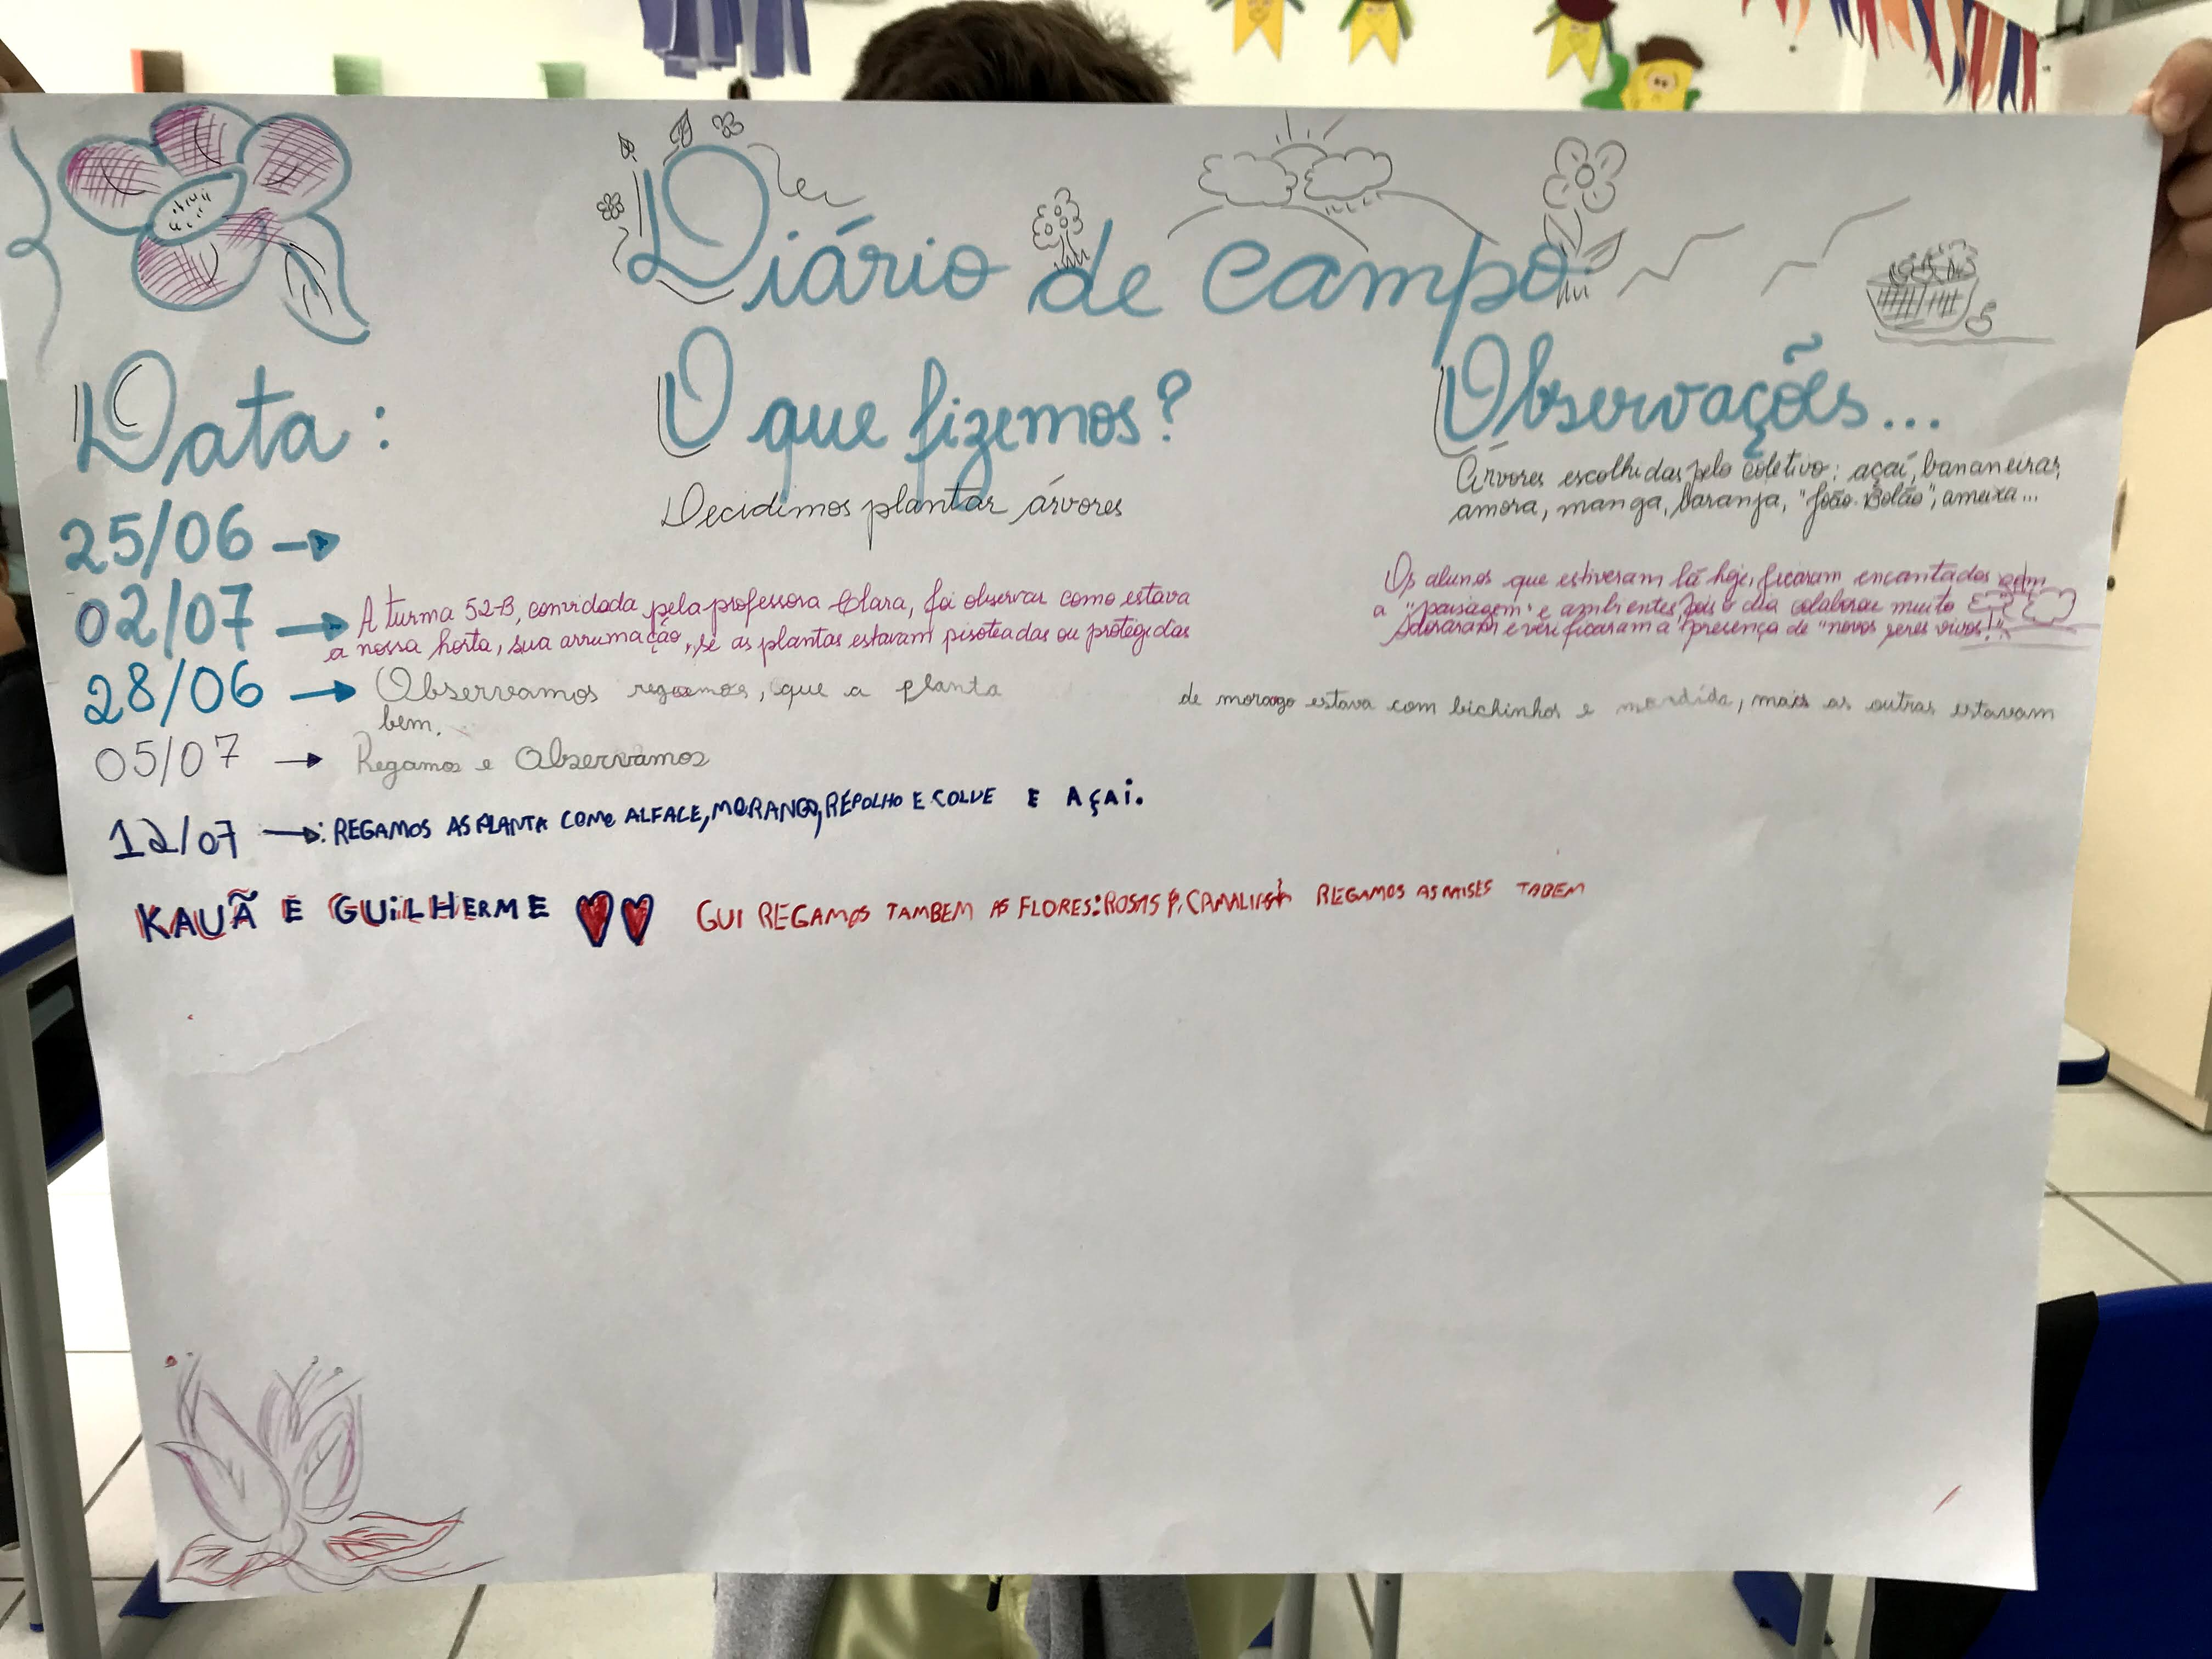 Diário de campo
Data:
O que fizemos?
Observações...
25/06 →
Decidimos plantar árvores
Árvores escolhidas pelo coletivo: açaí, bananeiras,
amora, manga, laranja, "João-Bolão", ameixa...
02/07 →
A turma 52-B, convidada pela professora Clara, foi observar como estava
a nossa horta, sua arrumação, se as plantas estavam pisoteadas ou protegidas
Os alunos que estiveram lá hoje, ficaram encantados com
a "paisagem" e ambientes, pois o dia colaborou muito
Adoraram e verificaram a presença de "novos seres vivos!"
28/06 → Observamos regamos, que a planta de morango estava com bichinhos e mordida, mais as outras estavam
bem.
05/07 → Regamos e Observamos
12/07 →: REGAMOS AS PLANTA COMO ALFACE, MORANGO, REPOLHO E COLVE E AÇAi.
KAUÃ E GUiLHERME ♥♥ GUI REGAMOS TAMBEM AS FLORES: ROSAS REGAMOS AS TABEM